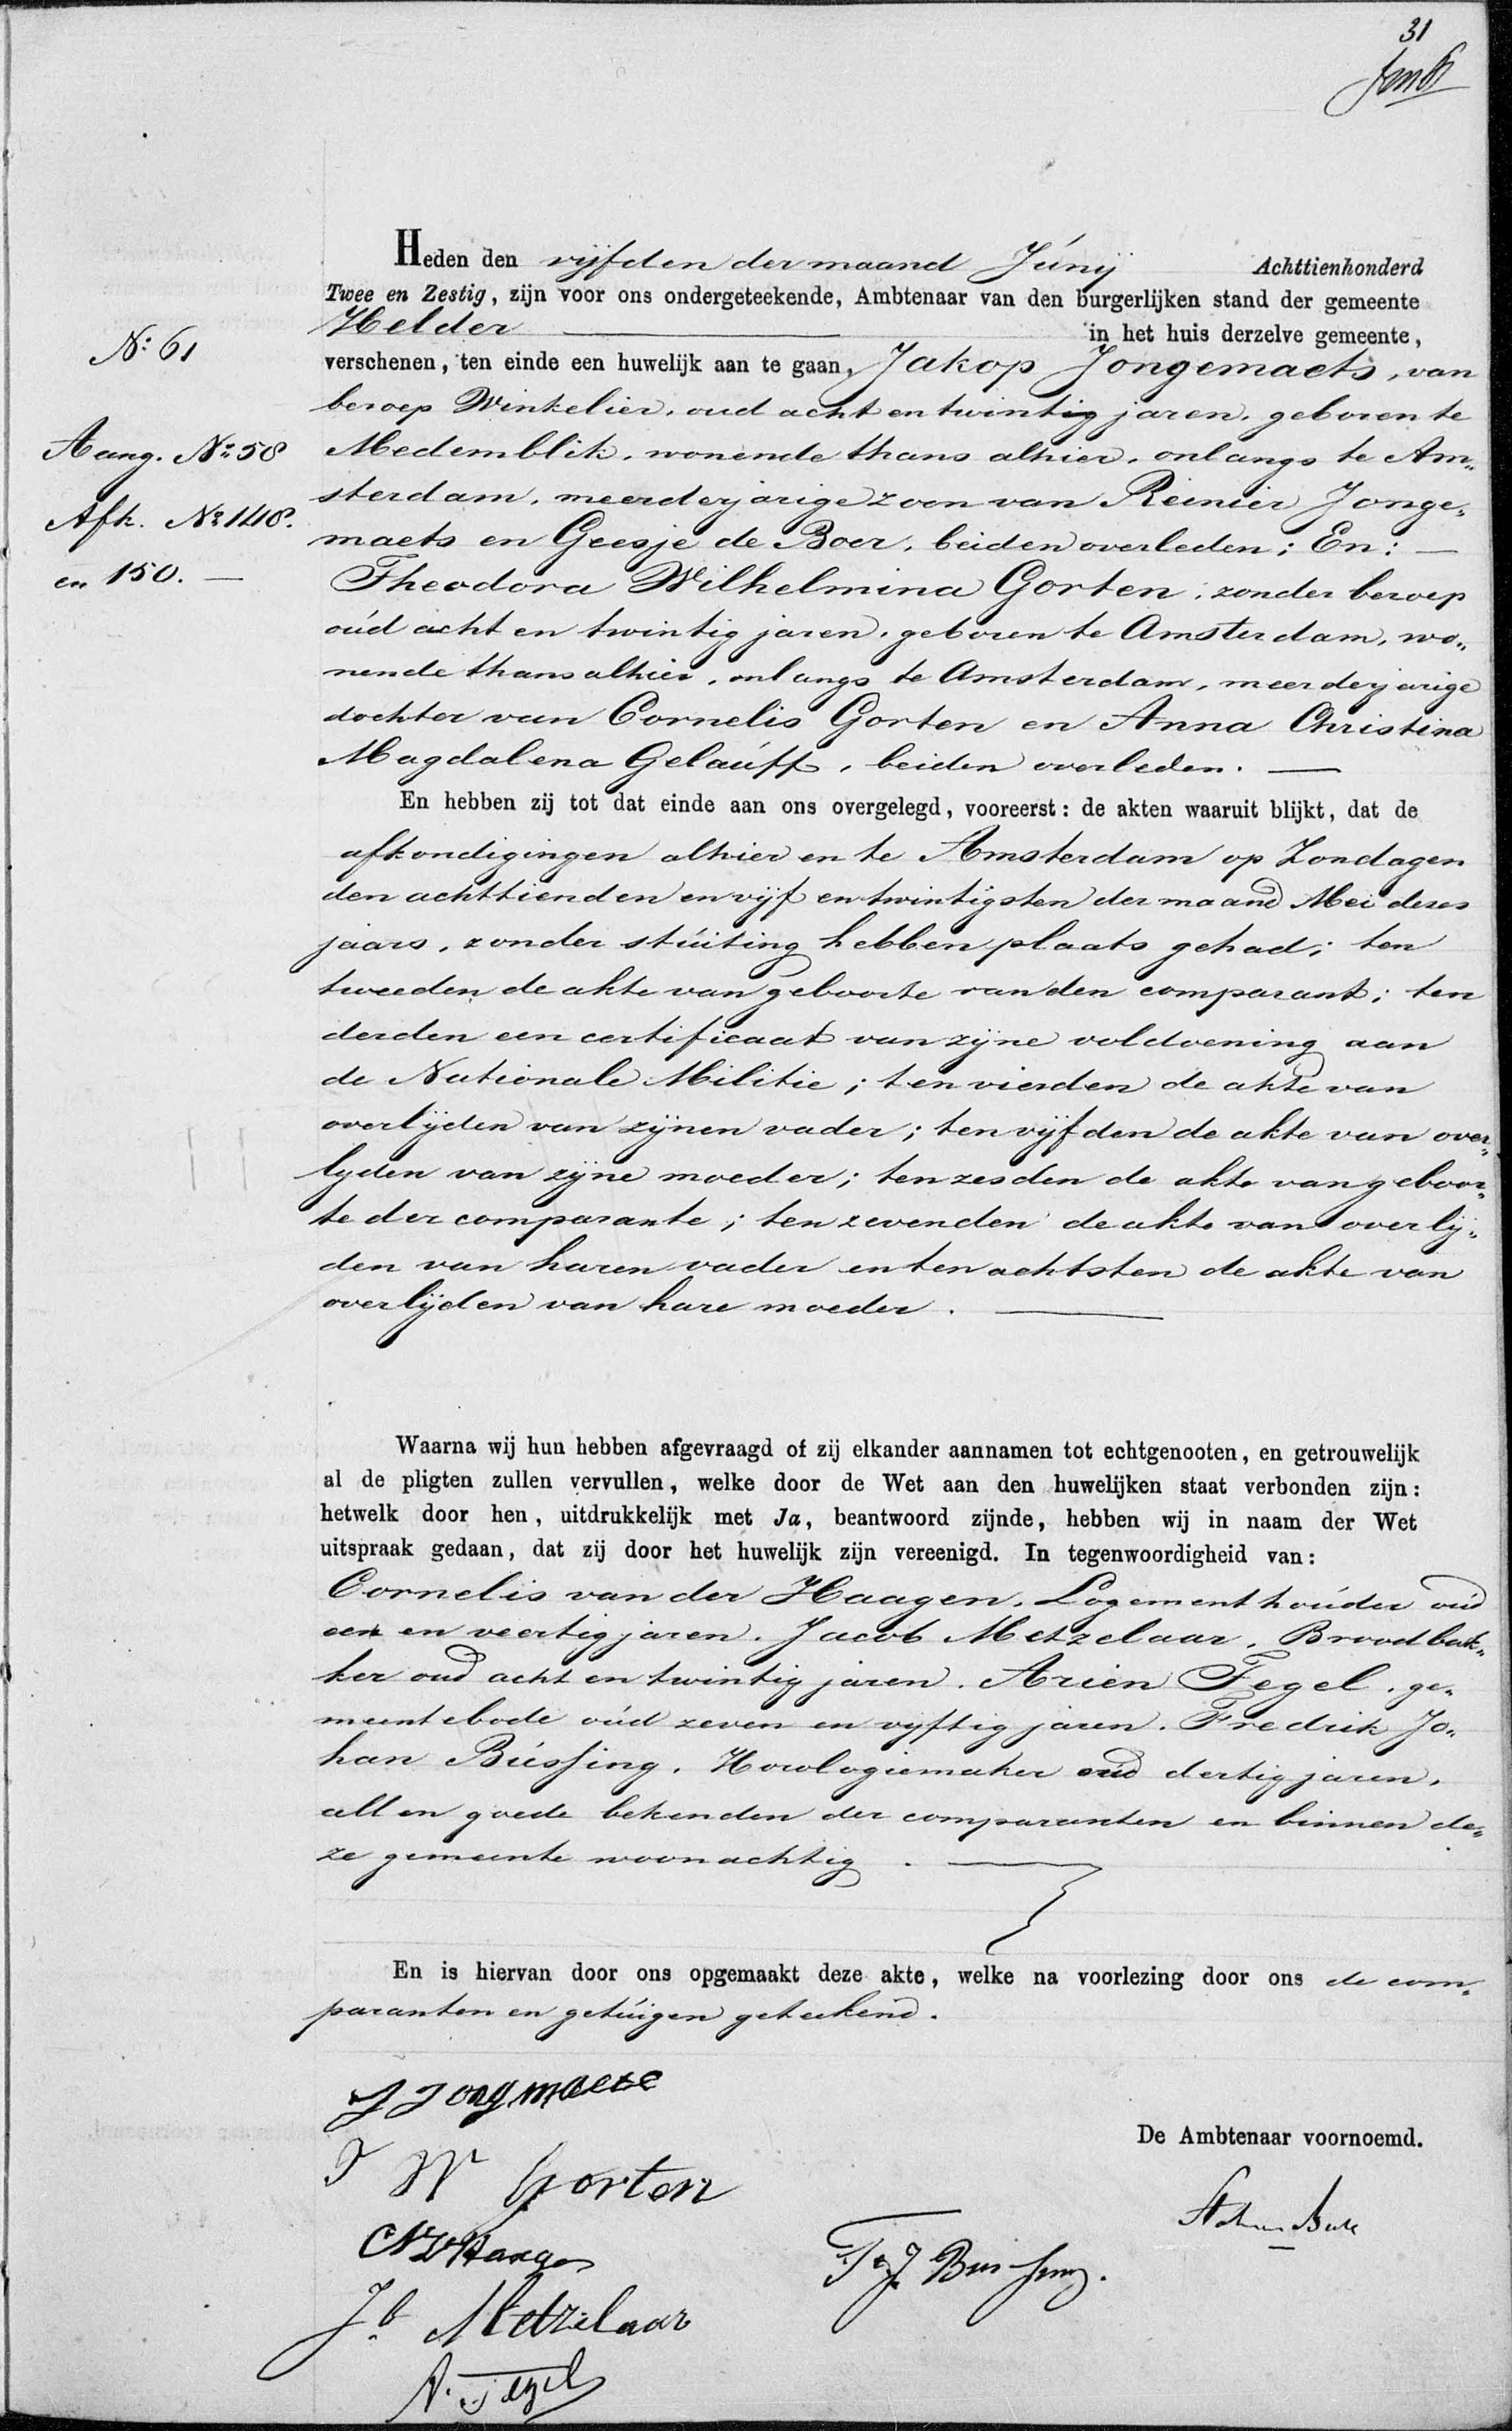 31
Heden den vijfden der maand Júnij Achttienhonderd
Twee en Zestig, zijn voor ons ondergeteekende, Ambtenaar van den burgerlijken stand der gemeente
Helder in het huis derzelve gemeente,
No 61
verschenen, ten einde een huwelijk aan te gaan, Jakop Jongemaets, van
beroep Winkelier, oud acht en twintig jaren, geboren te
Aang. No 58
Medemblik, wonende thans alhier, onlangs te Am„
sterdam, meerderjarige zoon van Reinier Jonge„
Afk. No 148.
maets en Geesje de Boer, beiden overleden; En: —
en 150. —
Theodora Wilhelmina Gorten, zonder beroep
oúd acht en twintig jaren, geboren te Amsterdam, wo„
nende thans alhier, onlangs te Amsterdam, meerderjarige
dochter van Cornelis Gorten en Anna Christina
Magdalena Gelaúff, beiden overleden. —
En hebben zij tot dat einde aan ons overgelegd, vooreerst: de akten waaruit blijkt, dat de
afkondigingen alhier en te Amsterdam op Zondagen
den achttienden en vijf en twintigsten der maand Mei dezes
jaars, zonder stúiting hebben plaats gehad; ten
tweeden de akte van geboorte van den comparant; ten
derden een certificaat van zijne voldoening aan
de Nationale Militie; ten vierden de akte van
overlijden van zijnen vader; ten vijfden de akte van over„
lijden van zijne moeder; ten zesden de akte van geboor„
te der comparante; ten zevenden de akte van overlij„
den van haren vader en ten achtsten de akte van
overlijden van hare moeder. —
Waarna wij hun hebben afgevraagd of zij elkander aannamen tot echtgenooten, en getrouwelijk
al de pligten zullen vervullen, welke door de Wet aan den huwelijken staat verbonden zijn:
hetwelk door hen, uitdrukkelijk met Ja, beantwoord zijnde, hebben wij in naam der Wet
uitspraak gedaan, dat zij door het huwelijk zijn vereenigd. In tegenwoordigheid van:
Cornelis van der Haagen, Logementhoúder oud
een en veertig jaren. Jacob Metzelaar, Broodbak„
ker oud acht en twintig jaren. Arien Tegel, ge„
meentebode oúd zeven en vyftig jaren. Fredrik Jo„
han Bússing, Horologiemaker oúd dertig jaren,
allen goede bekenden der comparanten en binnen de„
ze gemeente woonachtig. —
En is hiervan door ons opgemaakt deze akte, welke na voorlezing door ons de com„
paranten en getúigen geteekend.
J Jongmaets
De Ambtenaar voornoemd.
T W Gorten
F. J. Bussing.
Jb Metzelaar
A. Tegel